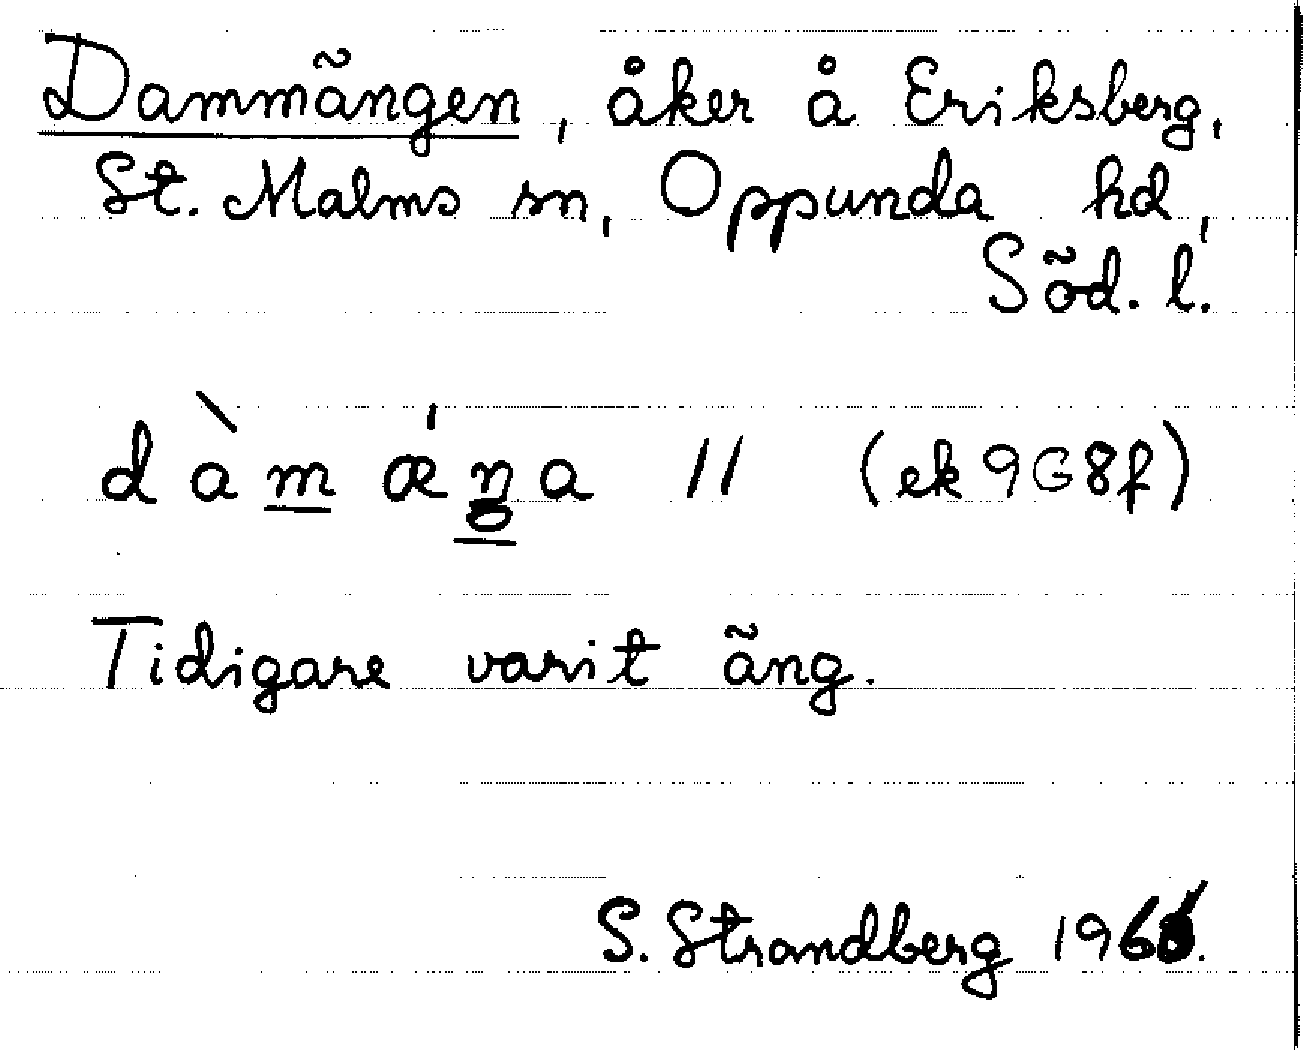 Dammängen, åker å Eriksberg,
St. Malms sn, Oppunda hd,
Söd. l.
dàm ǽŋa // (ek 9G8f)
Tidigare varit äng.
S. Strandberg